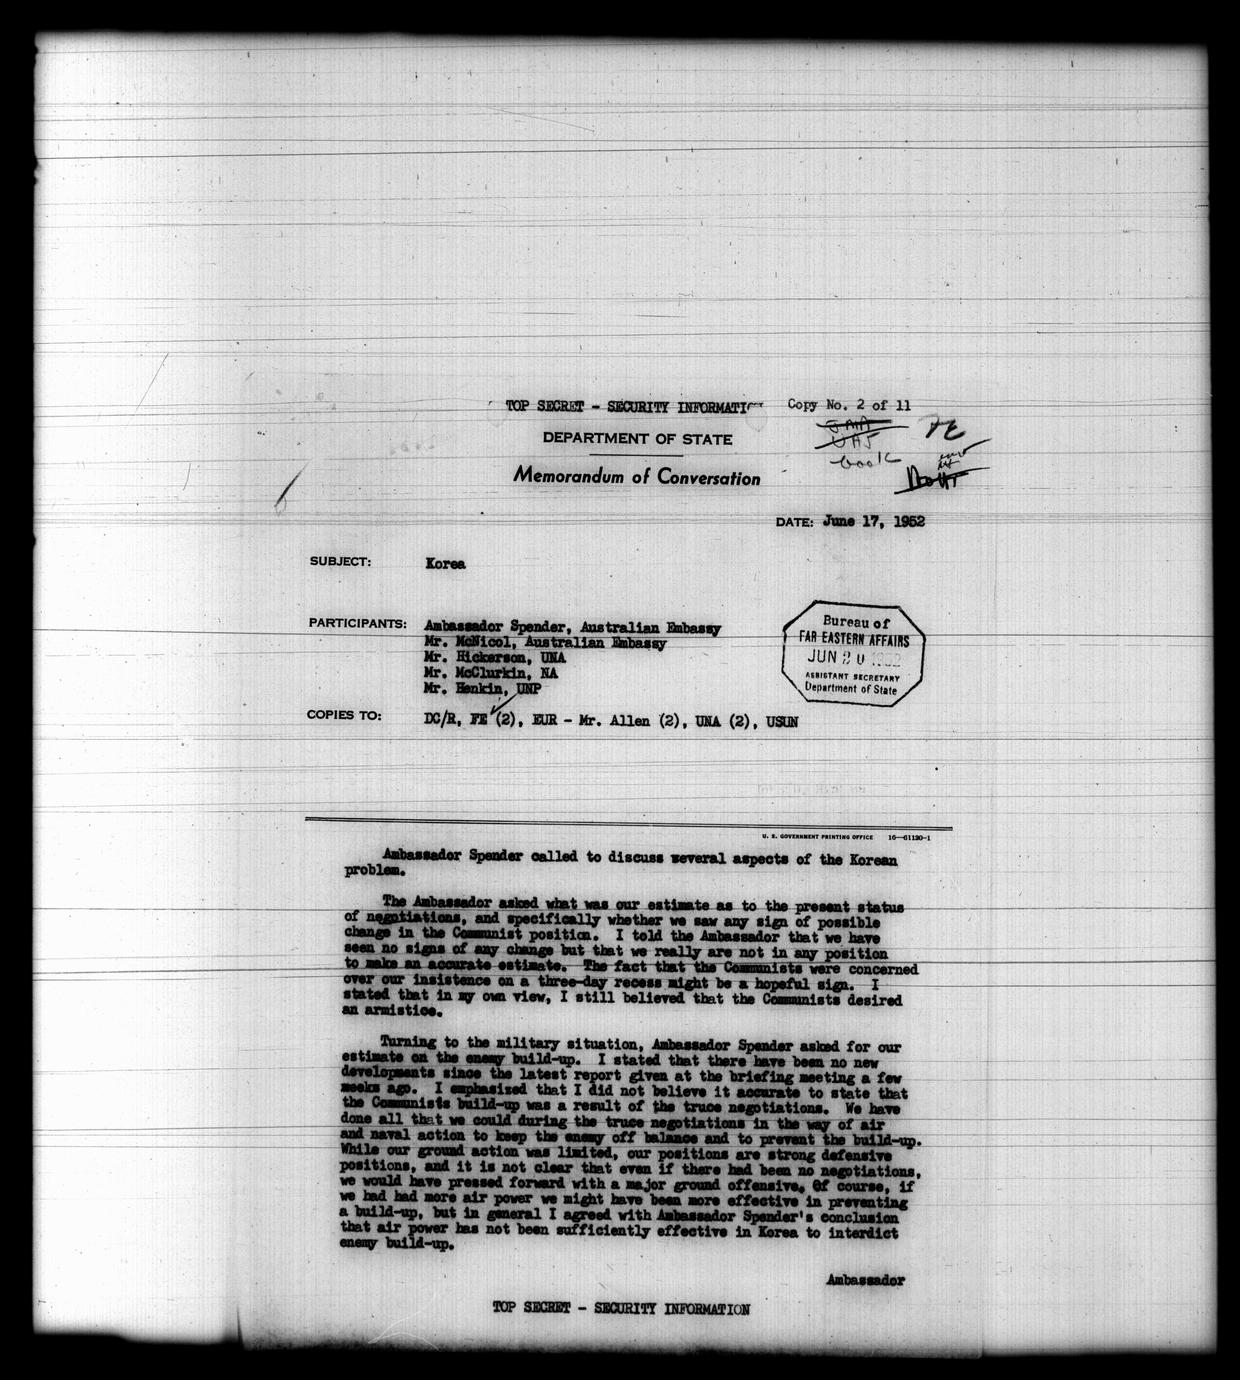 TOP SECRET - SECURITY INFORMATION
Copy No. 2 of 11
DEPARTMENT OF STATE
book
FE
Memorandum of Conversation
DATE: June 17, 1952
SUBJECT: Korea
PARTICIPANTS: Ambassador Spender, Australian Embassy
Mr. McNicol, Australian Embassy
Mr. Hickerson, UNA
Mr. McClurkin, NA
Mr. Henkin, UNP
COPIES TO: DC/R, FE (2), EUR - Mr. Allen (2), UNA (2), USUN
Bureau of
FAR EASTERN AFFAIRS
JUN 20 1952
ASSISTANT SECRETARY
Department of State
U. S. GOVERNMENT PRINTING OFFICE 16-61120-1
Ambassador Spender called to discuss several aspects of the Korean
problem.
The Ambassador asked what was our estimate as to the present status
of negotiations, and specifically whether we saw any sign of possible
change in the Communist position. I told the Ambassador that we have
seen no signs of any change but that we really are not in any position
to make an accurate estimate. The fact that the Communists were concerned
over our insistence on a three-day recess might be a hopeful sign. I
stated that in my own view, I still believed that the Communists desired
an armistice.
Turning to the military situation, Ambassador Spender asked for our
estimate on the enemy build-up. I stated that there have been no new
developments since the latest report given at the briefing meeting a few
weeks ago. I emphasized that I did not believe it accurate to state that
the Communists build-up was a result of the truce negotiations. We have
done all that we could during the truce negotiations in the way of air
and naval action to keep the enemy off balance and to prevent the build-up.
While our ground action was limited, our positions are strong defensive
positions, and it is not clear that even if there had been no negotiations,
we would have pressed forward with a major ground offensive. Of course, if
we had had more air power we might have been more effective in preventing
a build-up, but in general I agreed with Ambassador Spender's conclusion
that air power has not been sufficiently effective in Korea to interdict
enemy build-up.
Ambassador
TOP SECRET - SECURITY INFORMATION